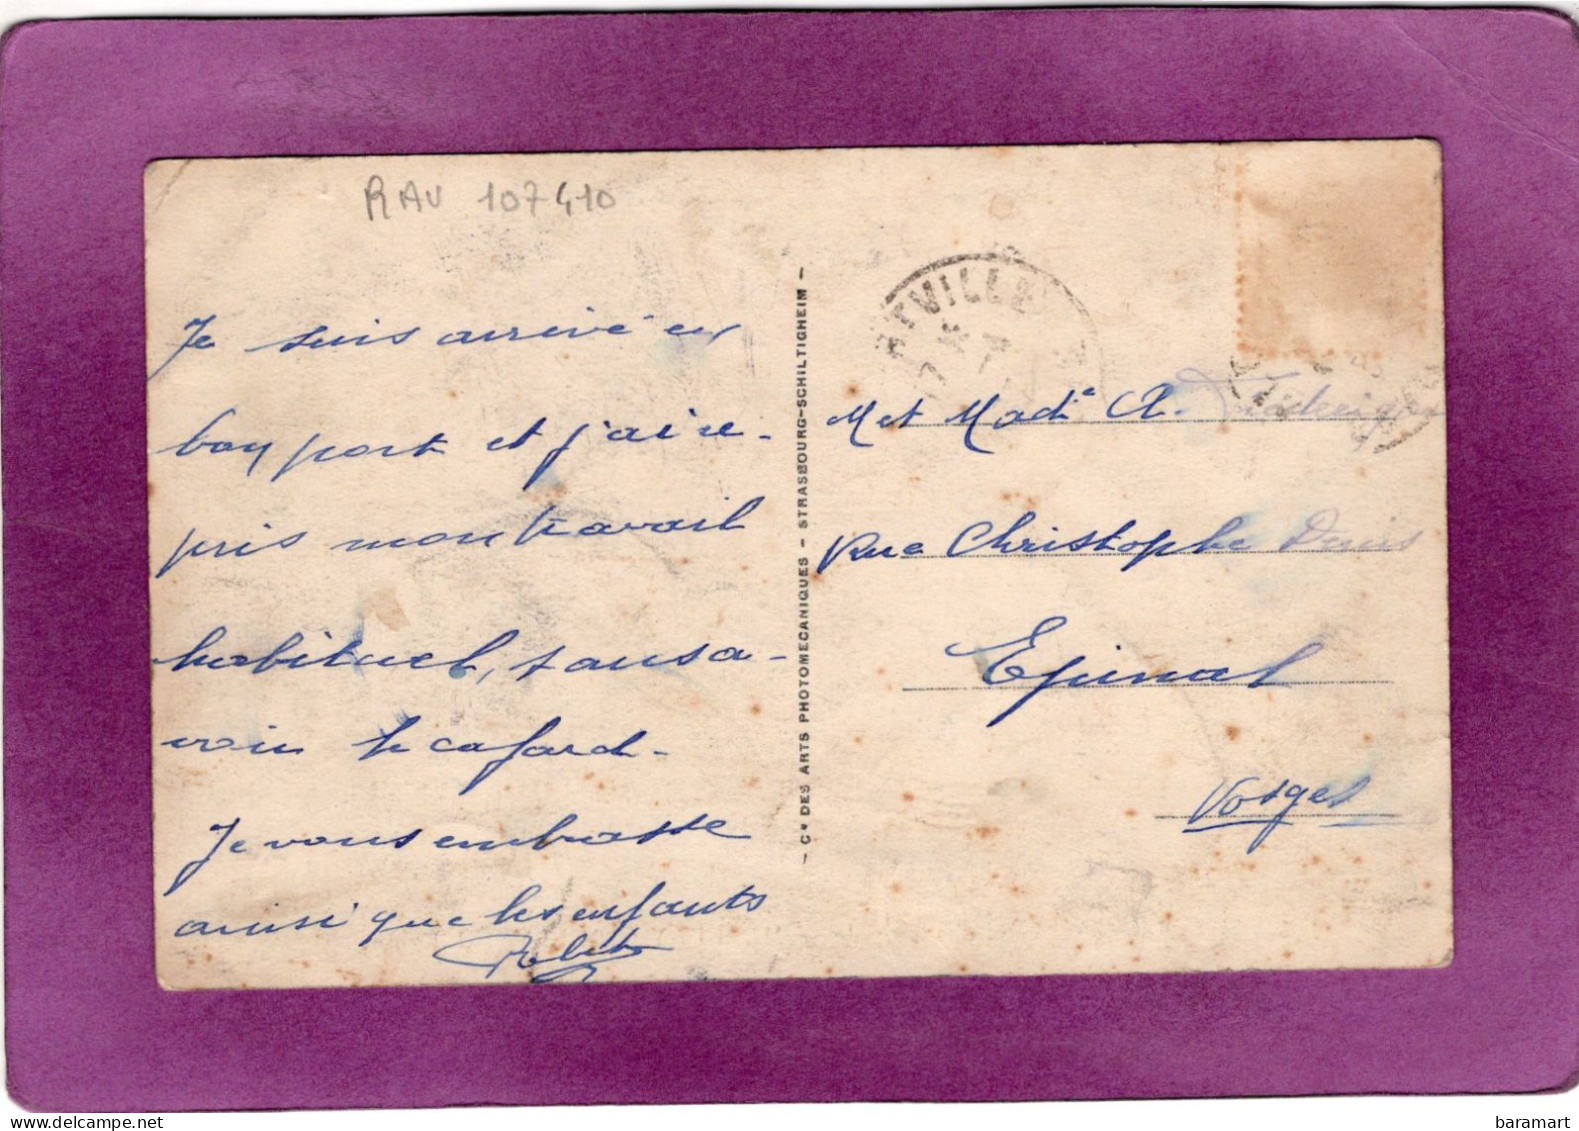 RAV 107410
Je suis arrivé en
bon port et j'ai re-
pris mon travail
habituel, sans a-
voir le cafard-
Je vous embrasse
ainsi que les enfants
- Cie DES ARTS PHOTOMECANIQUES - STRASBOURG-SCHILTIGHEIM -
M et Made A.
Rue Christophe Denis
Epinal
Vosges
www.delcampe.net
baramart